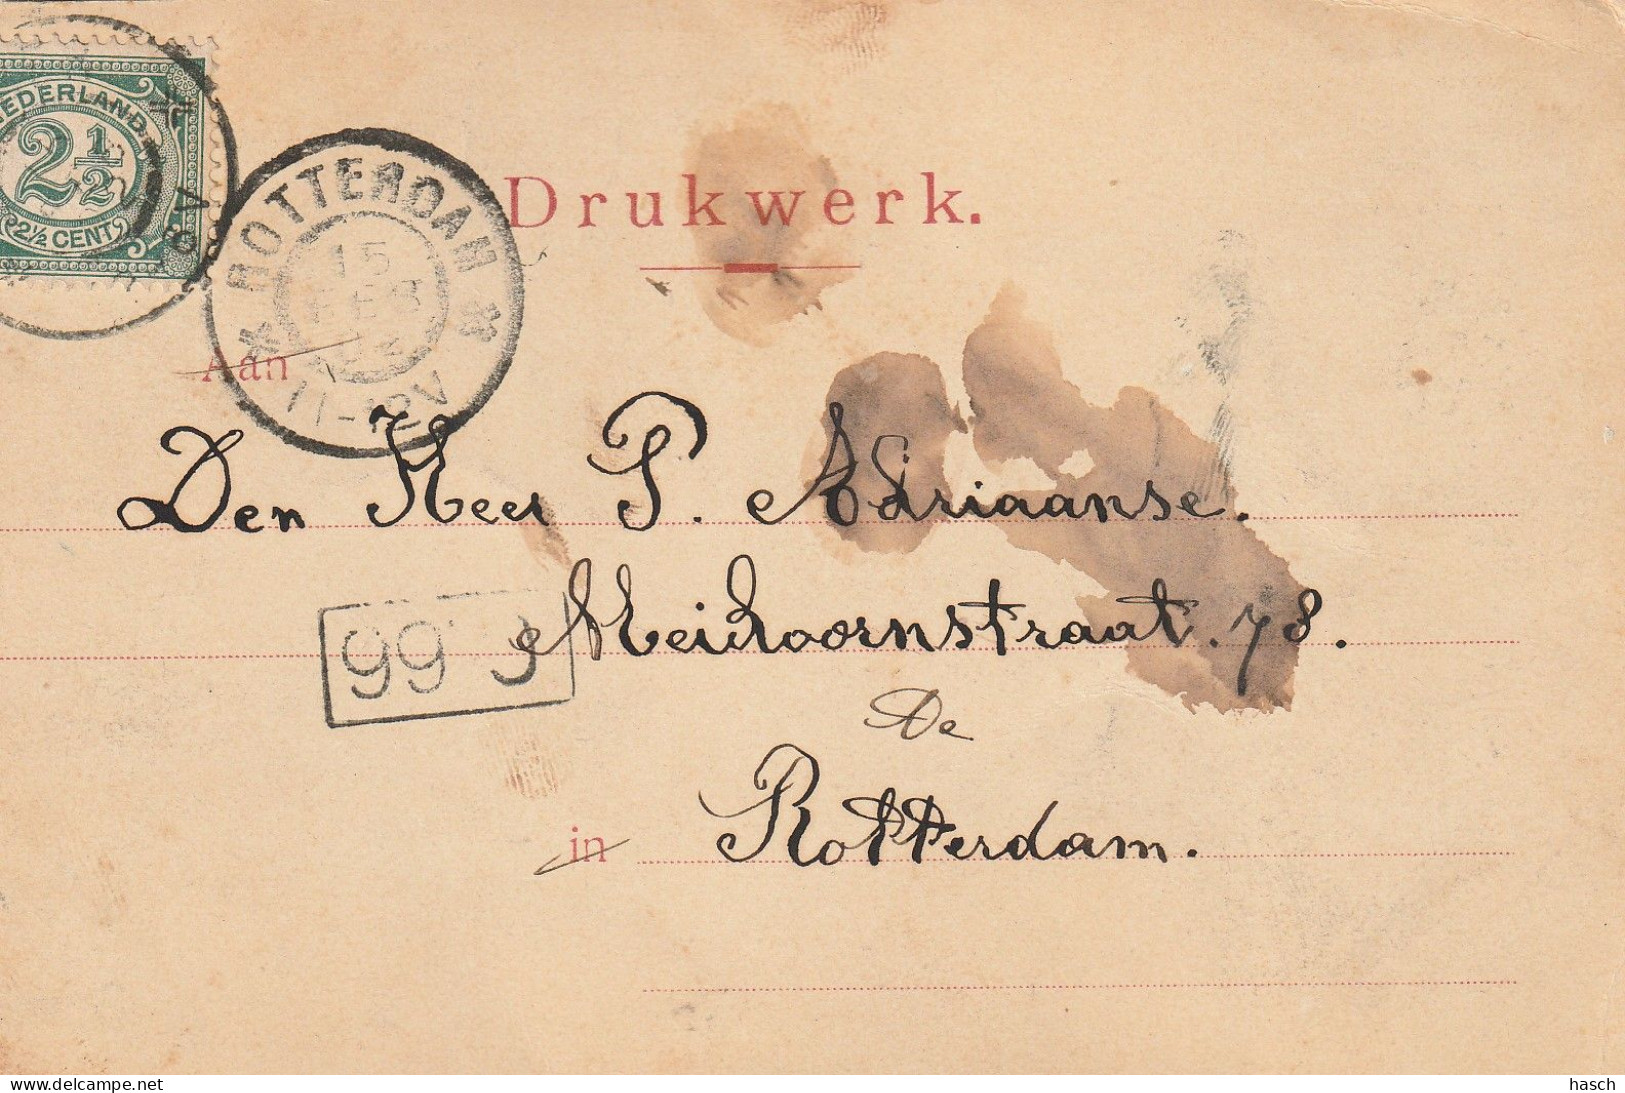 NEDERLAND
2½
2½ CENT
ROTTERDAM
15
FEB
11-12V
Drukwerk.
Aan
Den Heer P. Adriaanse.
Meidoornstraat. 78.
De
in Rotterdam.
delcampe.net
hasch